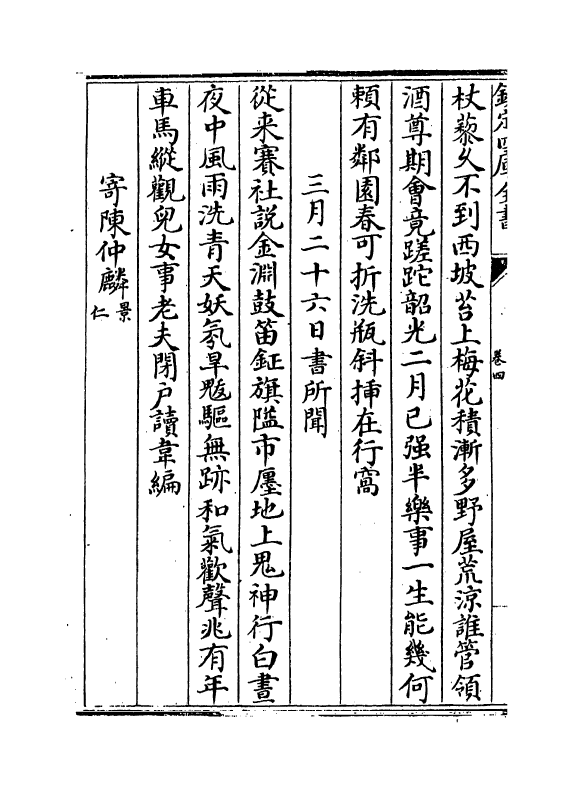 欽定四庫全書
卷四
杖藜久不到西坡苔上梅花積漸多野屋荒涼誰管領
酒尊期會竟蹉跎韶光二月已强半樂事一生能幾何
頼有鄰園春可折洗瓶斜揷在行窩
三月二十六日書所聞
從来賽社説金淵鼓笛鉦旗隘市廛地上鬼神行白晝
夜中風雨洗青天妖氛旱魃驅無跡和氣歡聲兆有年
車馬縱觀兒女事老夫閉户讀韋編
寄陳仲麟景仁